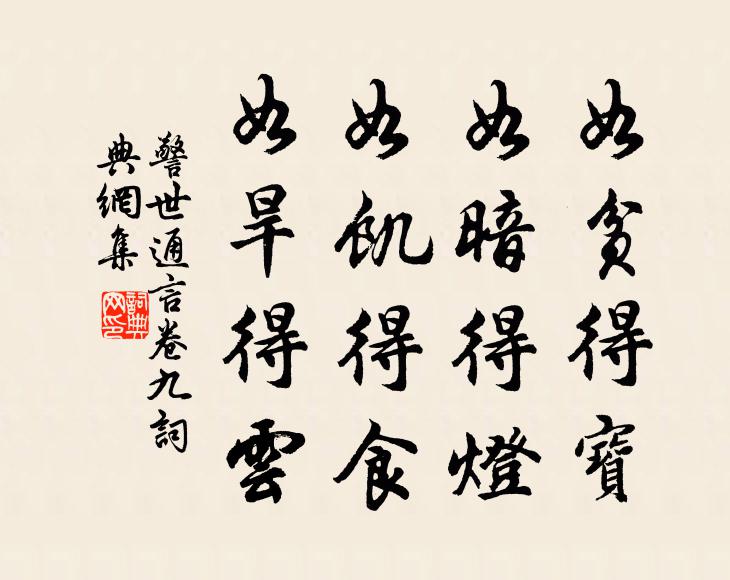 如貧得寶
如暗得燈
如飢得食
如旱得雲
警世通言卷九詞
典網集
詞典
网印